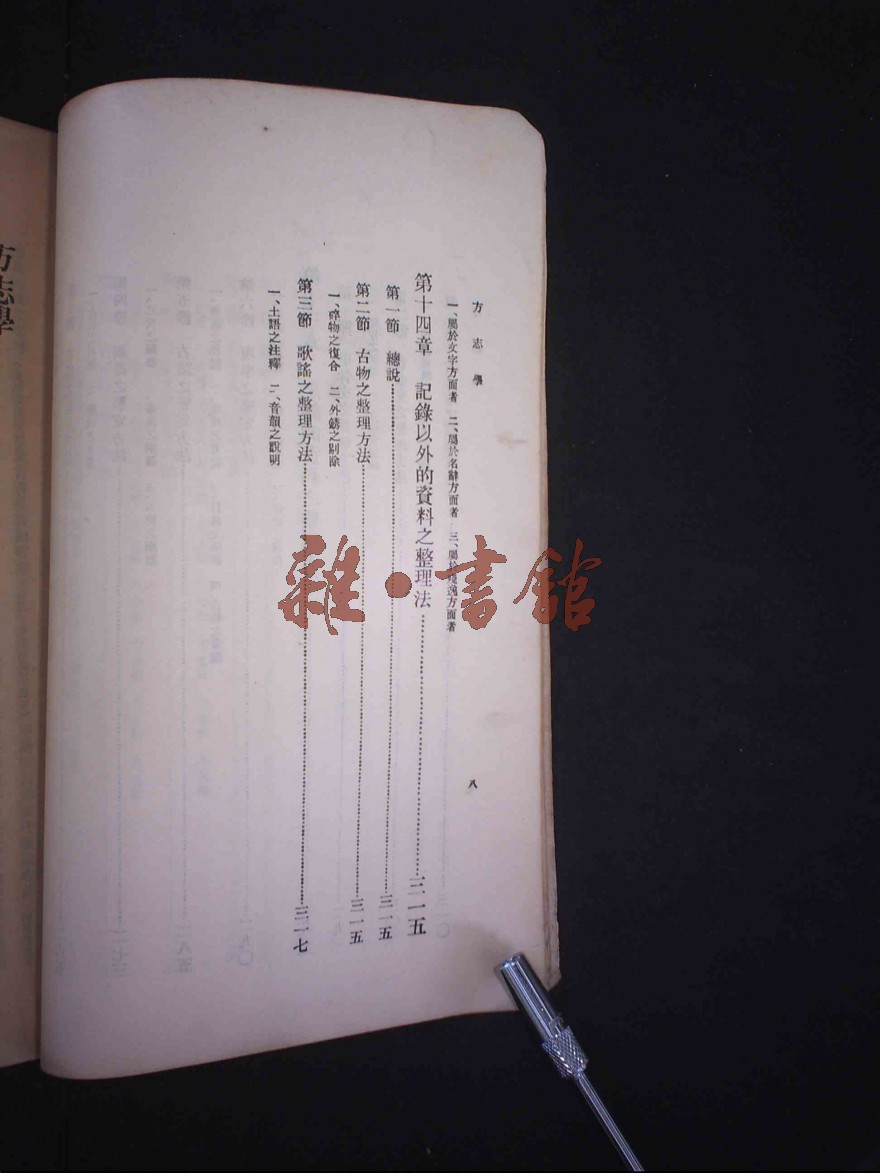 方志學
一、屬於文字方面者 二、屬於名辭方面者 三、屬於 逸方面者
第十四章 記錄以外的資料之整理法 三一五
第一節 總說 三一五
第二節 古物之整理方法 三一五
一、碎物之復合 二、外銹之剔除
第三節 歌謠之整理方法 三一七
一、土語之注釋 二、音韻之說明
八
雜·書館
方志學